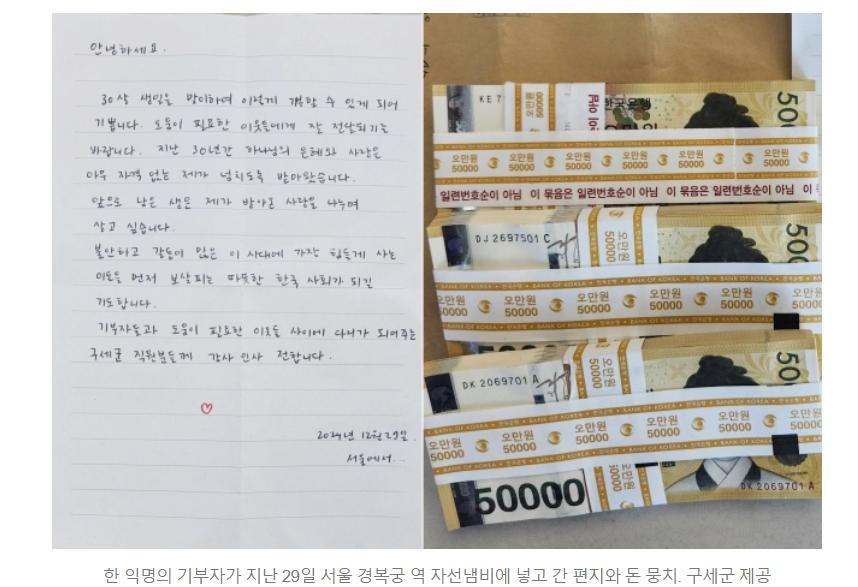 안녕하세요.
30살 생일을 맞이하여 이렇게 기부할 수 있게 되어
기쁩니다. 도움이 필요한 이웃들에게 잘 전달되기를
바랍니다. 지난 30년간 하나님의 은혜와 사랑을
아무 자격 없는 제가 넘치도록 받아왔습니다.
앞으로 남은 생은 제가 받아온 사랑을 나누며
살고 싶습니다.
불안하고 갈등이 많은 이 시대에 가장 힘들게 사는
이들을 먼저 보살피는 따뜻한 한국 사회가 되길
기도합니다.
기부자들과 도움이 필요한 이웃들 사이에 다리가 되어주는
구세군 직원분들께 감사 인사 전합니다.
2024년 12월 29일.
서울에서...
KE 7
오만원 50000
한국은행
50
오만원 오만원 오만원 오만원 오만원
50000 50000 50000 50000 50000
일련번호순이 아님 이 묶음은 일련번호순이 아님 이 묶음은 일련번호순이 아님
DJ 2697501 C
오만원 50000
50
BANK OF KOREA 한국은행 BANK OF KOREA
오만원 오만원 오만원 오만원 오만원
50000 50000 50000 50000 50000
DK 2069701 A
오만원 50000
50
BANK OF KOREA 한국은행 BANK OF KOREA
오만원 오만원 오만원 오만원 오만원
50000 50000 50000 50000 50000
50000
DK 2069701 A
한 익명의 기부자가 지난 29일 서울 경복궁 역 자선냄비에 넣고 간 편지와 돈 뭉치. 구세군 제공